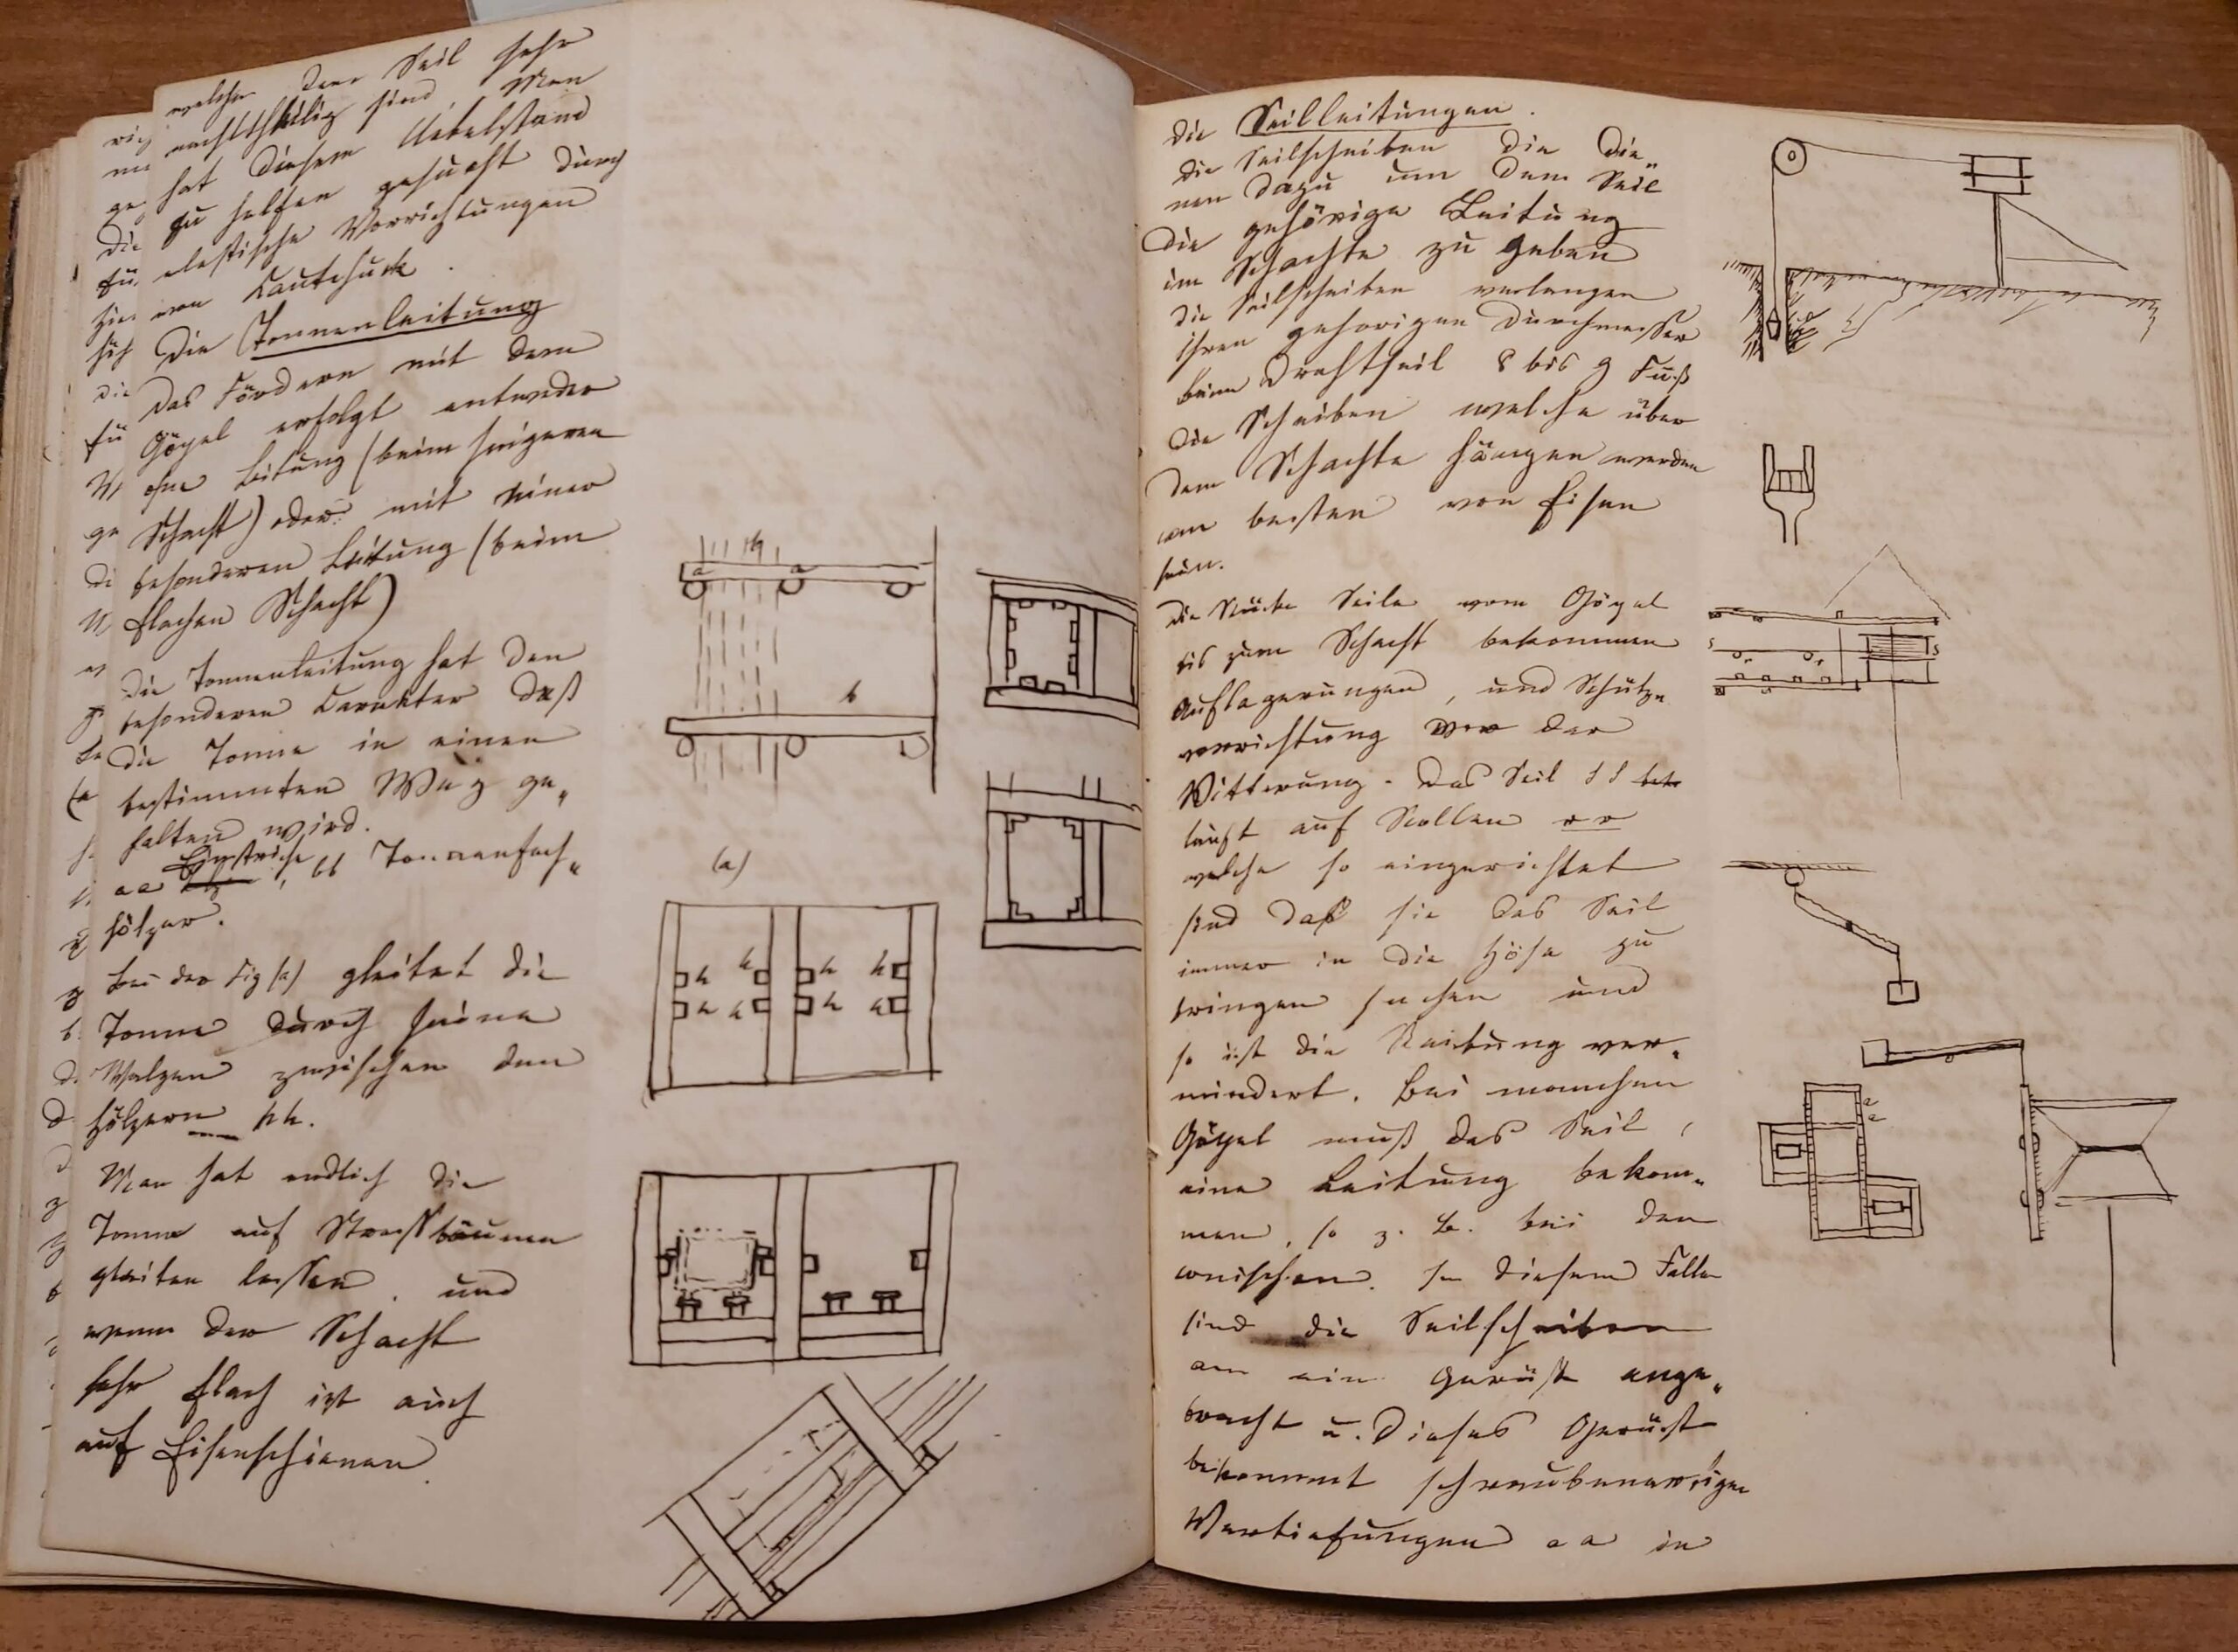 welche dem Seil sehr
nachttheilig sind. Man
hat diesem Uebelstand
zu helfen gesucht durch
elastische Vorrichtungen
von Kautschuck.
Die Tonnenleitung
Das Fördern mit dem
Göpel erfolgt entweder
ohne Leitung (beim seigeren
Schacht) oder mit einer
besonderen Leitung (beim
flachen Schacht)
Die Tonnenleitung hat den
besonderen Carakter daß
die Tonne in einen
bestimmten Weg ge„
halten wird.
Einstriche
aa , bb Tonnenfach„
hölzer.
bei der Fig (a) gleitet die
Tonne durch seine
Walzen zwischen den
Hölzern hh.
Man hat endlich die
Tonne auf Straßbäumen
gleiten lassen. und
wenn der Schacht
sehr flach ist auch
auf Eisenschienen
a a
b
(a)
h h h h
h h h h
die Seilleitungen.
die Seilscheiben die die„
nen dazu um dem Seil
die gehörige Leitung
im Schachte zu geben
die Seilscheiben verlangen
ihren gehorigen Durchmesser
beim Drahtseil 8 bis 9 Fuß
die Scheiben welche über
dem Schachte hängen werden
am besten von Eisen
sein.
die Stücke Seile vom Göpel
bis zum Schacht bekommen
Auflagerungen, und Schutz„
vorrichtung vor der
Witterung. Das Seil SS
läuft auf Rollen rr
welche so eingerichtet
sind daß sie das Seil
immer in die Höhe zu
bringen suchen und
so ist die Reibung ver„
mindert. Bei manchen
Göpel muß das Seil,
eine Leitung bekom„
men, so z. B. bei den
conischen. In diesem Falle
sind die Seilscheiben
an ein Gerüst ange„
bracht u. dieses Gerüst
bekommt schraubenartige
Vertiefungen aa in
S r r S
a
a